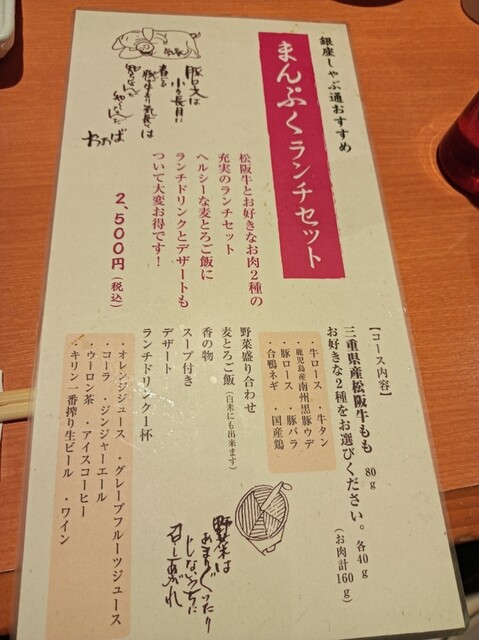 銀座しゃぶ通おすすめ
まんぷくランチセット
松阪牛とお好きなお肉2種の
充実のランチセット
ヘルシーな麦とろご飯に
ランチドリンクとデザートも
ついて大変お得です!
2,500円(税込)
【コース内容】
三重県産松阪牛もも 80g
お好きな2種をお選びください。各40g
(お肉計160g)
・牛ロース ・牛タン
・鹿児島産南州黒豚ウデ
・豚ロース ・豚バラ
・合鴨ネギ ・国産鶏
野菜盛り合わせ
麦とろご飯(白米にも出来ます)
香の物
スープ付き
デザート
ランチドリンク1杯
・オレンジジュース ・グレープフルーツジュース
・コーラ ・ジンジャーエール
・ウーロン茶 ・アイスコーヒー
・キリン一番搾り生ビール ・ワイン
野菜は
あまりぐいたり
しないうちに
召し上がれ